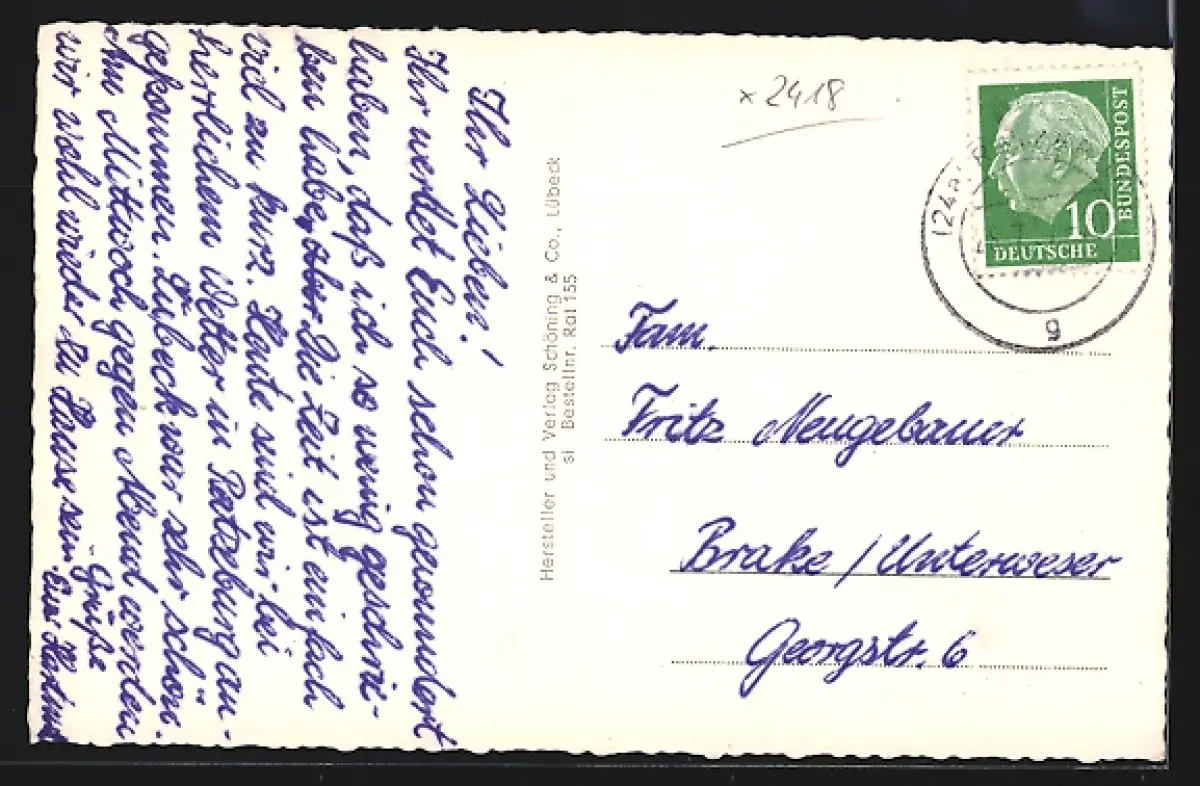 Ihr Lieben!
Ihr werdet Euch schon gewundert
haben, daß ich so wenig geschrie-
ben habe, aber die Zeit ist einfach
viel zu kurz. Heute sind wir bei
herrlichem Wetter in Ratzeburg an-
gekommen. Lübeck war sehr schön.
Am Mittwoch gegen Abend werden
wir wohl wieder zu Hause sein.
Grüße
Euer
Hersteller und Verlag Schöning & Co., Lübeck
si Bestellnr. Ral 155
x 2418
BUNDESPOST
10
DEUTSCHE
(24a)
g
Fam.
Fritz Neugebauer
Brake / Unterweser
Georgstr. 6